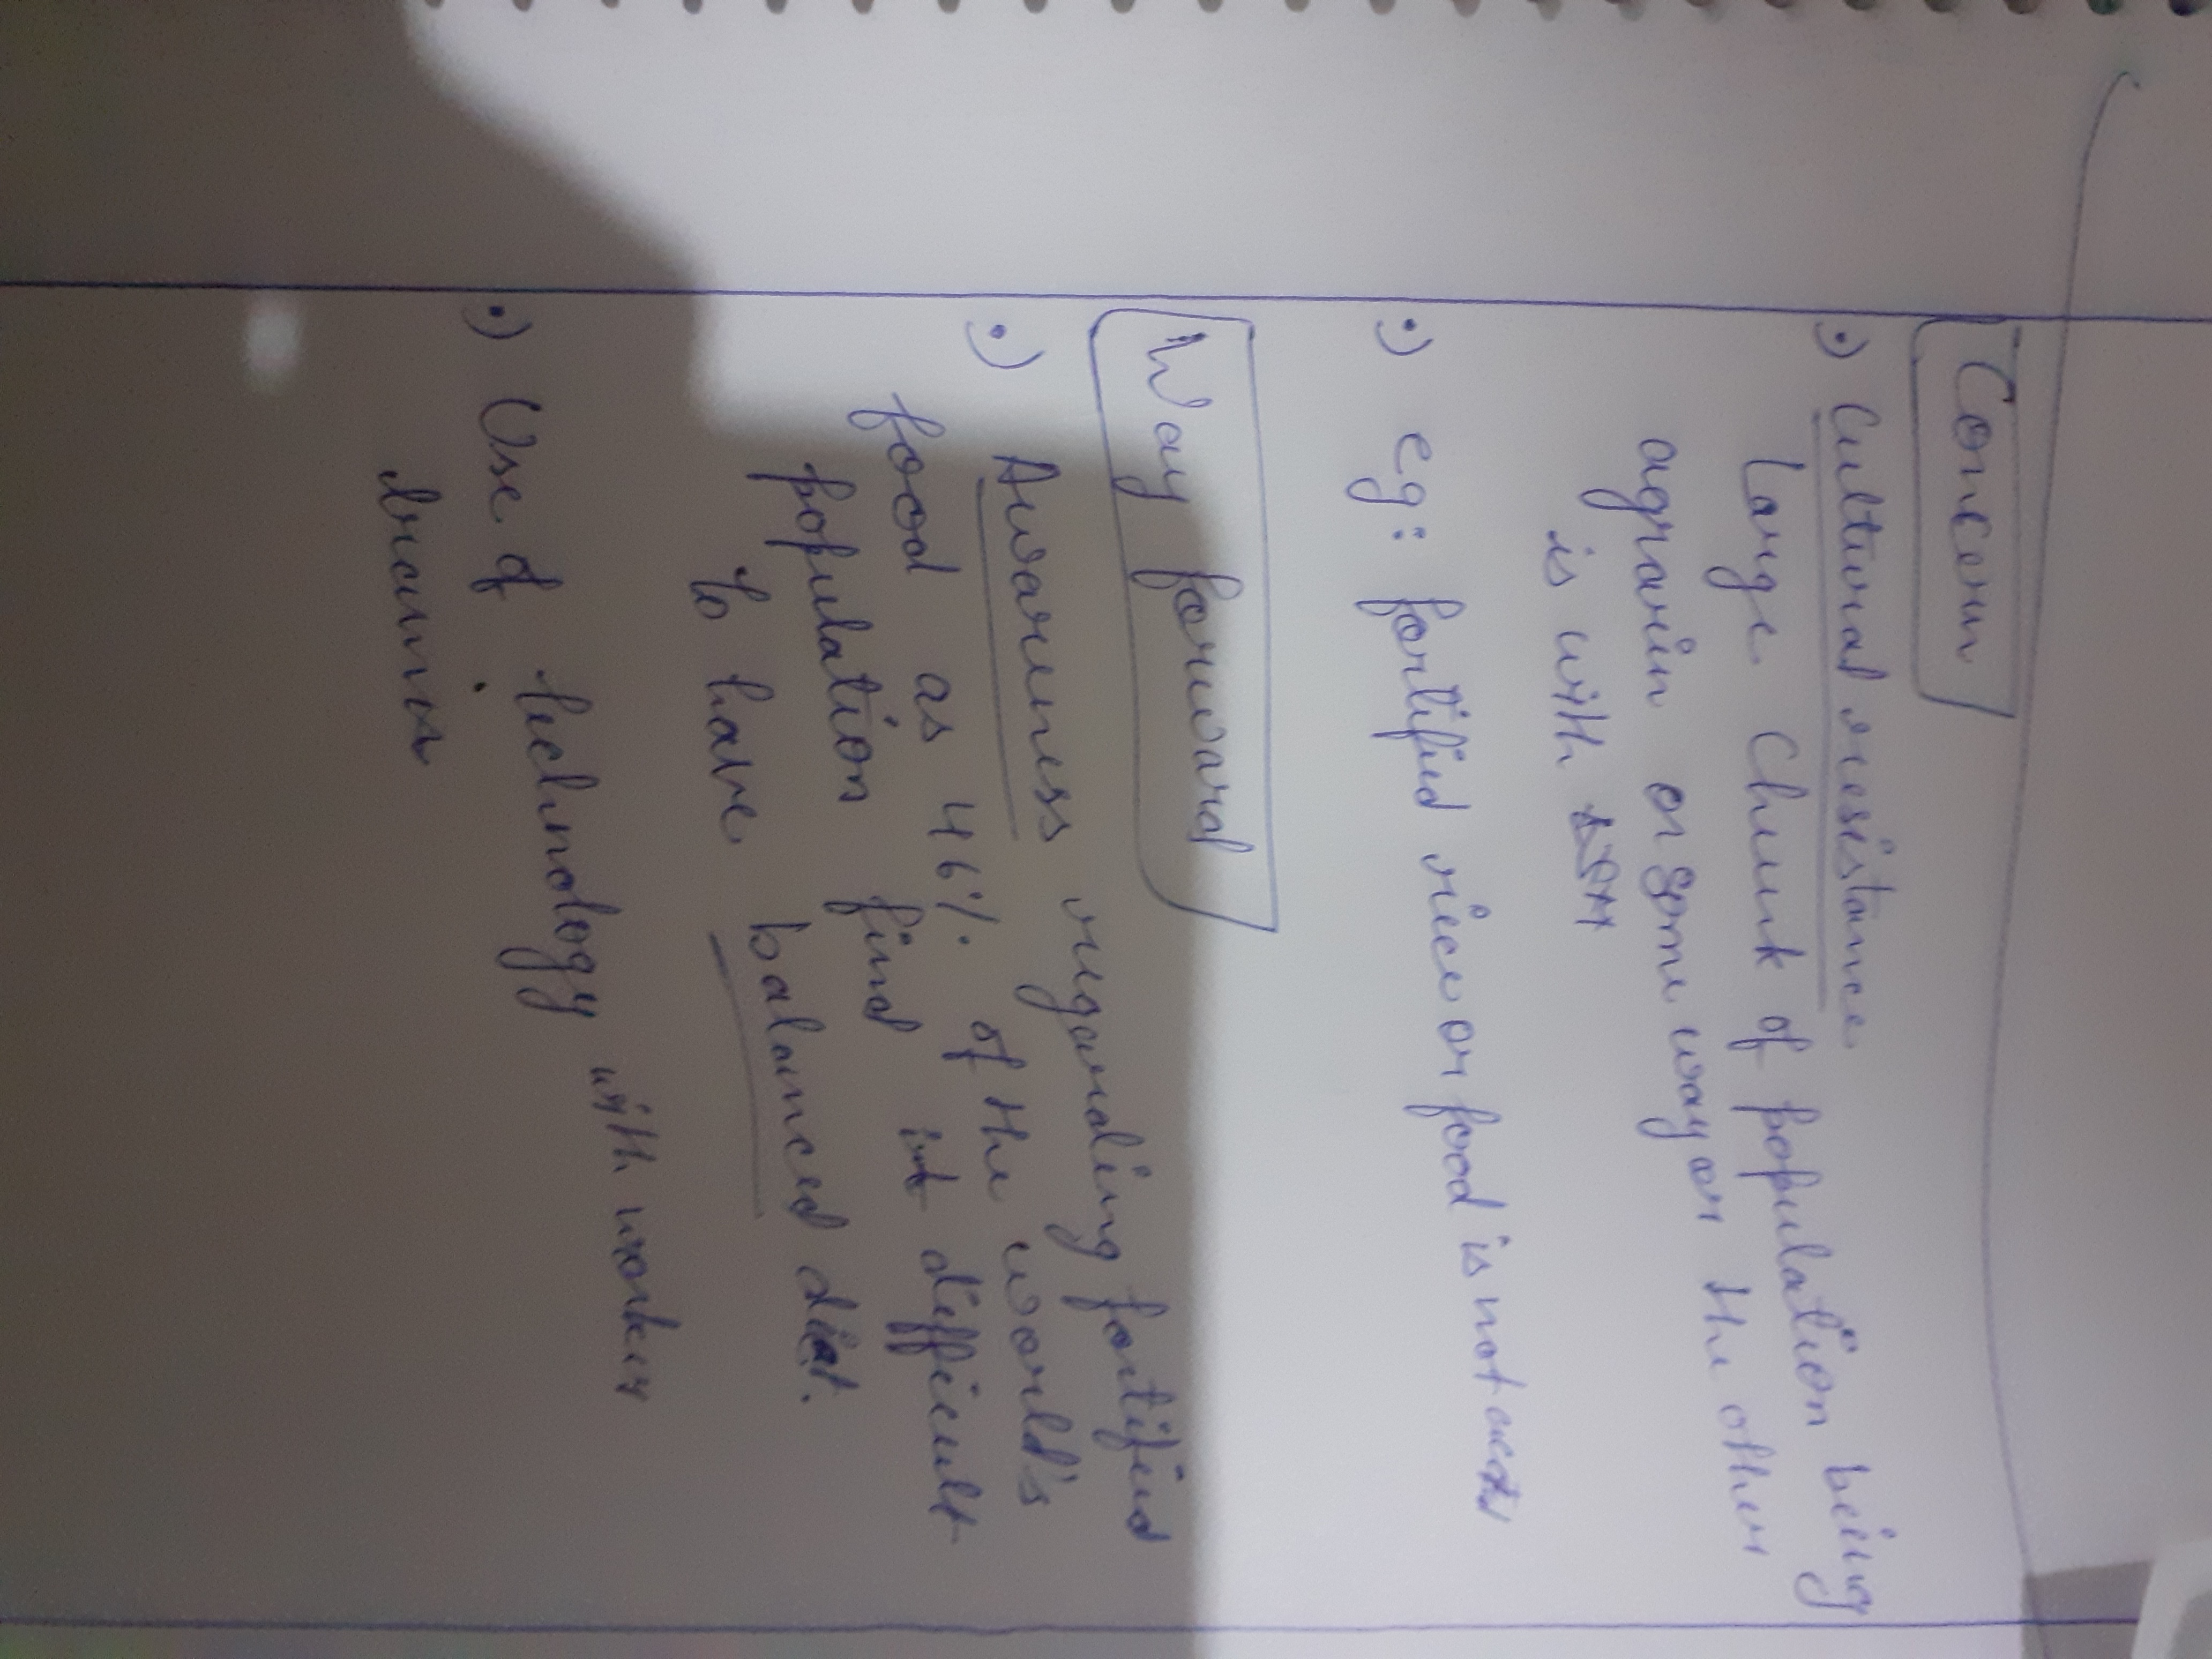 Concern
•) Cultural resistance
Large Chunk of population being
agrarin or some way or the other
is with
•) eg: fortified rice or food is not
Way forward
•) Awareness regarding fortified
food as 46% of the world's
population find it difficult
to have balanced diet.
•) Use of technology with